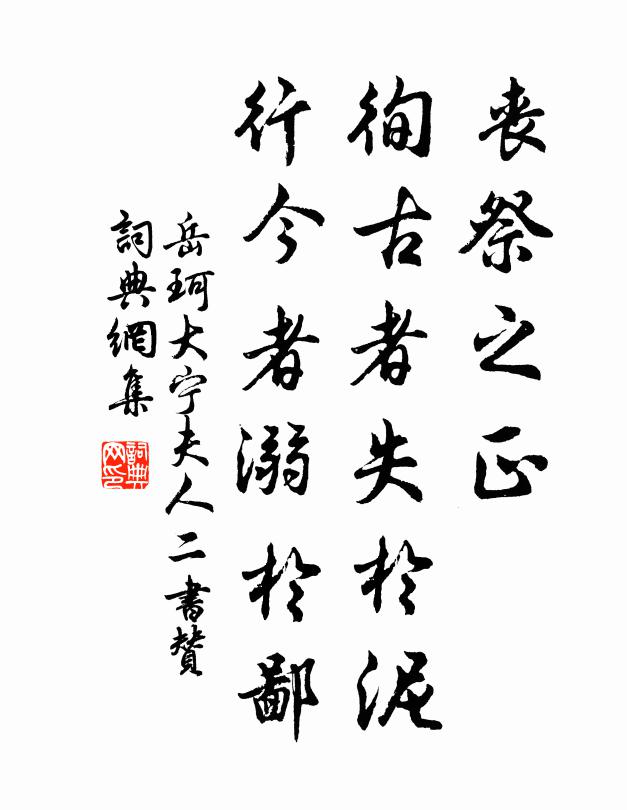 喪祭之正
徇古者失於泥
行今者溺於鄙
岳珂大宁夫人二書贊
詞典網集
詞典網印